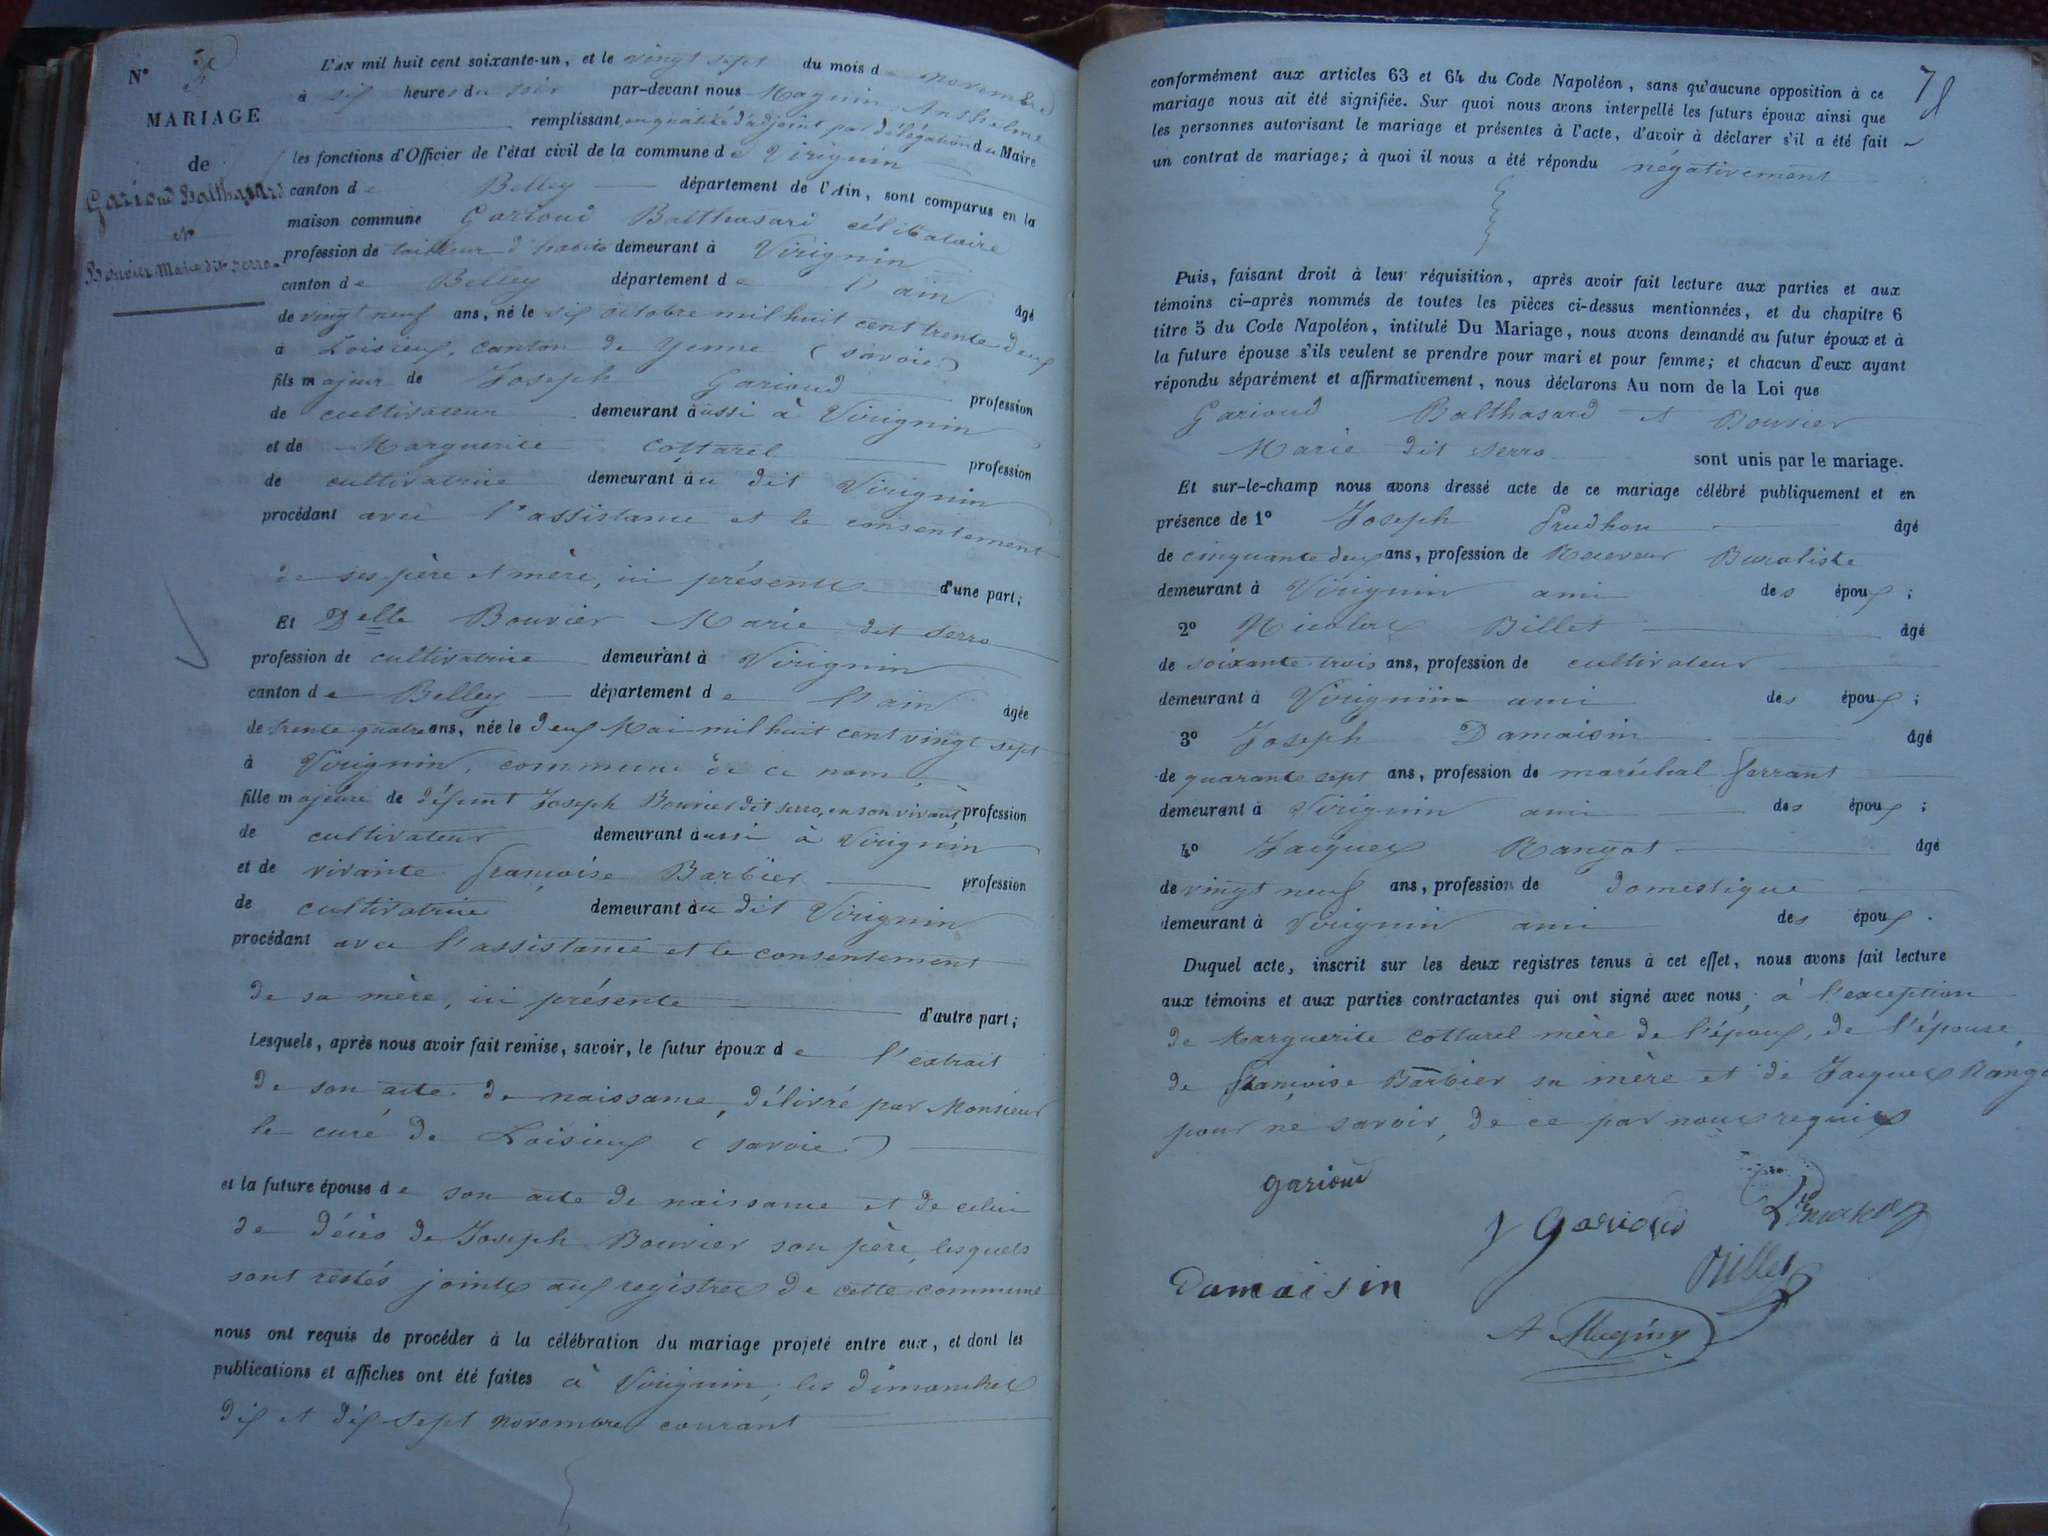 N° 
MARIAGE
de
Garioud Balthasard
et
Bouvier Marie dit serro
L'AN mil huit cent soixante-un, et le vingt sept du mois de novembre
à six heures du soir par-devant nous Magnin Anthelme
remplissant en qualité d'adjoint par délégation du Maire
les fonctions d'Officier de l'état civil de la commune de Virignin
canton de Belley département de l'Ain, sont comparus en la
maison commune Garioud Balthasard célibataire
profession de tailleur d'habits demeurant à Virignin
canton de Belley département de l'ain âgé
de vingt neuf ans, né le six octobre mil huit cent trente deux
à Loisieux, canton de Yenne (savoie)
fils majeur de Joseph Garioud profession
de cultivateur demeurant aussi à Virignin
et de Marguerite Cottarel profession
de cultivatrice demeurant au dit Virignin
procédant avec l'assistance et le consentement
de ses père et mère, ici présents d'une part;
Et Delle Bouvier Marie dit serro
profession de cultivatrice demeurant à Virignin
canton de Belley département de l'ain âgée
de trente quatre ans, née le deux Mai mil huit cent vingt sept
à Virignin, commune de ce nom,
fille majeure de défunt Joseph Bouvier dit serro, en son vivant, profession
de cultivateur demeurant aussi à Virignin
et de vivante françoise Barbier profession
de cultivatrice demeurant au dit Virignin
procédant avec l'assistance et le consentement
de sa mère, ici présente d'autre part;
Lesquels, après nous avoir fait remise, savoir, le futur époux de l'extrait
de son acte de naissance, délivré par Monsieur
le curé de Loisieux (savoie)
et la future épouse de son acte de naissance et de celui
de décès de Joseph Bouvier son père, lesquels
sont restés joints aux registres de cette commune
nous ont requis de procéder à la célébration du mariage projeté entre eux, et dont les
publications et affiches ont été faites à Virignin, les dimanches
dix et dix sept novembre courant
conformément aux articles 63 et 64 du Code Napoléon, sans qu'aucune opposition à ce
mariage nous ait été signifiée. Sur quoi nous avons interpellé les futurs époux ainsi que
les personnes autorisant le mariage et présentes à l'acte, d'avoir à déclarer s'il a été fait
un contrat de mariage; à quoi il nous a été répondu négativement
Puis, faisant droit à leur réquisition, après avoir fait lecture aux parties et aux
témoins ci-après nommés de toutes les pièces ci-dessus mentionnées, et du chapitre 6
titre 5 du Code Napoléon, intitulé Du Mariage, nous avons demandé au futur époux et à
la future épouse s'ils veulent se prendre pour mari et pour femme; et chacun d'eux ayant
répondu séparément et affirmativement, nous déclarons Au nom de la Loi que
Garioud Balthasard et Bouvier
Marie dit serro sont unis par le mariage.
Et sur-le-champ nous avons dressé acte de ce mariage célébré publiquement et en
présence de 1° Joseph Prudhon âgé
de cinquante deux ans, profession de Receveur Buraliste
demeurant à Virignin ami des époux;
2° Nicolas Billet âgé
de soixante trois ans, profession de cultivateur
demeurant à Virignin ami des époux;
3° Joseph Damaisin âgé
de quarante sept ans, profession de maréchal ferrant
demeurant à Virignin ami des époux;
4° Jacques Rangot âgé
de vingt neuf ans, profession de domestique
demeurant à Virignin ami des époux.
Duquel acte, inscrit sur les deux registres tenus à cet effet, nous avons fait lecture
aux témoins et aux parties contractantes qui ont signé avec nous, à l'exception
de Marguerite Cottarel mère de l'époux, de l'épouse,
de françoise Barbier sa mère et de Jacques Rango
pour ne savoir, de ce par nous requis
garioud
J Garioud
Damaisin
Billet
A Magnin